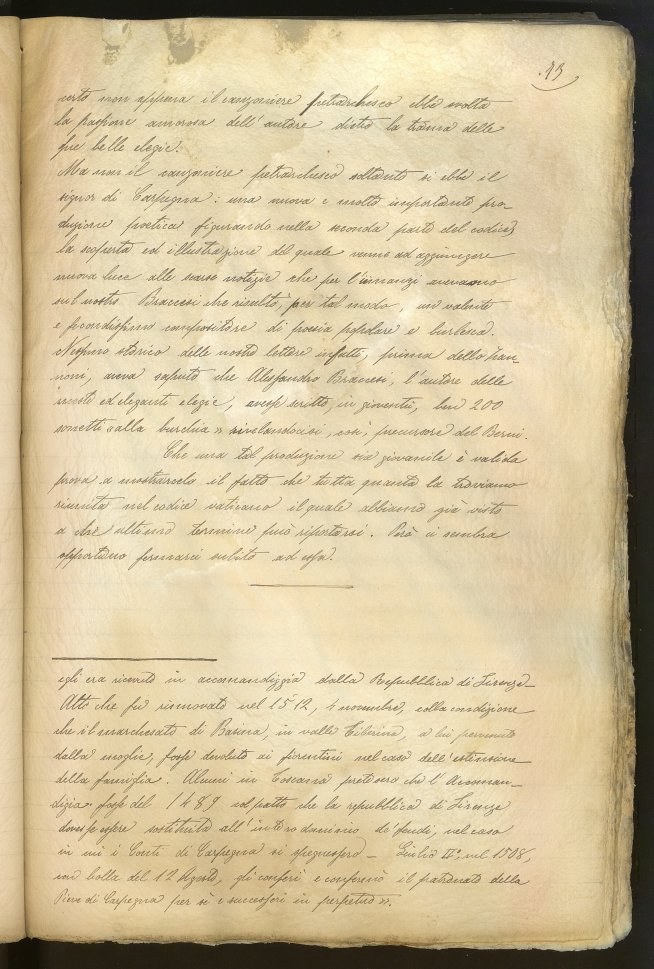 .43
certo non appena il canzoniere petrarchesco ebbe svolta
la passione amorosa dell'autore dietro la trama delle
sue belle elegie.
Ma non il canzoniere petrarchesco soltanto si ebbe il
signor di Carpegna: una nuova e molto importante pro-
duzione poetica figurando nella seconda parte del codice,
la scoperta ed illustrazione del quale venne ad aggiungere
nuova luce alle scarse notizie che per l'innanzi avevamo
sul nostro Braccesi che risultò, per tal modo, un valente
e fecondissimo compositore di poesia popolare e burlesca.
Nessuno storico delle nostre lettere infatti, prima dello Zan-
noni, aveva saputo che Alessandro Braccesi, l'autore delle
ed eleganti elegie, avesse scritto, in gioventù, ben 200
sonetti « alla burchia » rivelandocisi, così, precursore del Berni.
Che una tal produzione sia giovanile è valida
prova a mostrarcelo il fatto che tutta quanta la troviamo
riunita nel codice vaticano il quale abbiamo già visto
a che ultimo termine può riportarsi. Però ci sembra
opportuno fermarci subito ad essa.
egli era ricevuto in accomandigia dalla Repubblica di Firenze.
Atto che fu rinnovato nel 1512, 4 novembre, colla condizione
che il marchesato di Bascia, in valle Tiberina, a lui pervenuto
dalla moglie, fosse devoluto ai fiorentini nel caso dell'estensione
della famiglia. Alcuni in Toscana pretesero che l'Accoman-
digia fosse del 1489 col patto che la repubblica di Firenze
dovesse essere sostituita all'intero dominio dei feudi, nel caso
in cui i Conti di Carpegna si spegnessero - Giulio II°, nel 1508,
con bolla del 12 Agosto, gli conferì e confermò il patronato della
Pieve di Carpegna per sè e successori in perpetuo ».